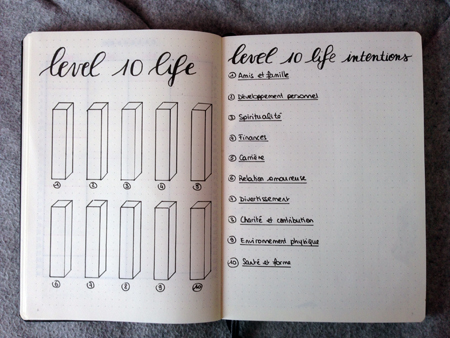 level 10 life
1 2 3 4 5
6 7 8 9 10
level 10 life intentions
1 Amis et famille
2 Développement personnel
3 Spiritualité
4 Finances
5 Carrière
6 Relation amoureuse
7 Divertissement
8 Charité et contribution
9 Environnement physique
10 Santé et forme